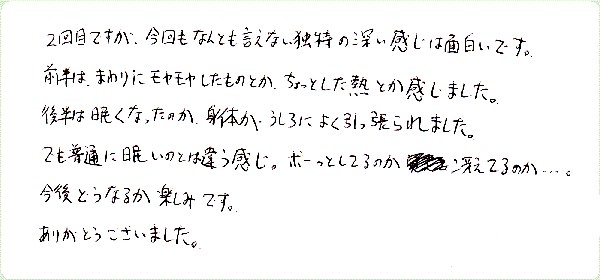 2回目ですが、今回もなんとも言えない独特の深い感じは面白いです。
前半は、まわりにモヤモヤしたものとか、ちょっとした熱とか感じました。
後半は眠くなったのか、身体が、うしろによく引っ張られました。
でも普通に眠いのとは違う感じ。ボーっとしてるのか冴えてるのか…。
今後どうなるか楽しみです。
ありがとうございました。